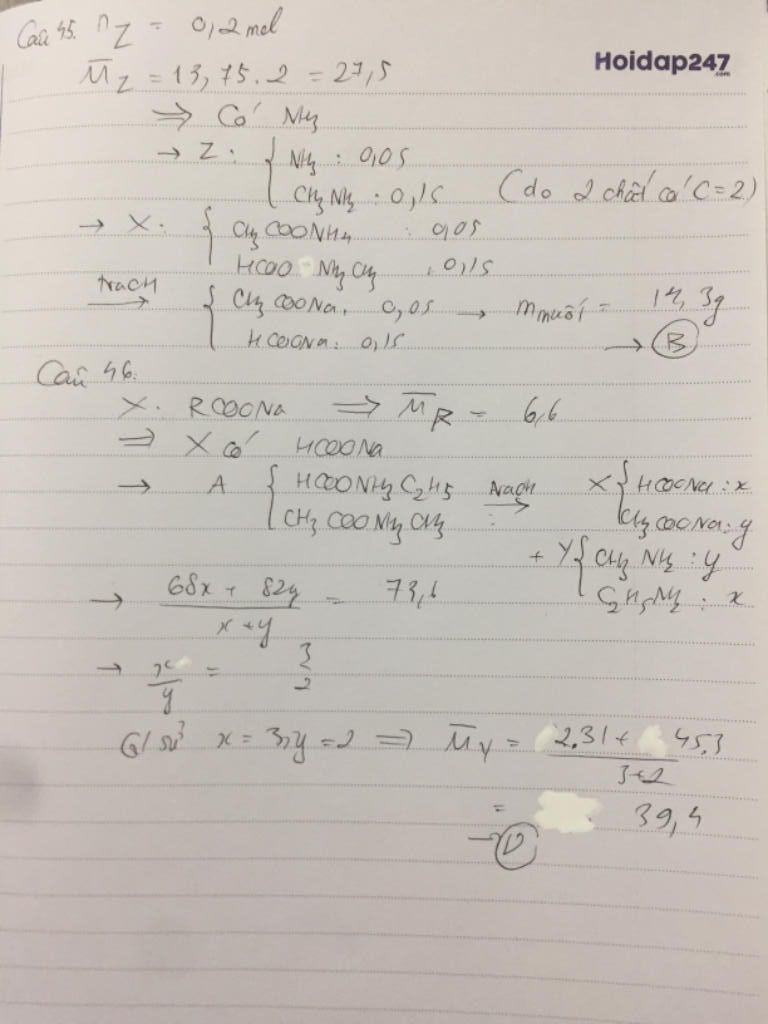 Câu 45. nZ = 0,2 mol
Hoidap247
.com
M̅Z = 13,75.2 = 27,5
⇒ Có NH3
→ Z: { NH3 : 0,05
CH3NH2 : 0,15 (do 2 chất có C=2)
→ X: { CH3COONH4 : 0,05
HCOONH3CH3 : 0,15
NaOH → { CH3COONa: 0,05 → m muối = 14,3g
HCOONa: 0,15 → B
Câu 46:
X: RCOONa ⇒ M̅R = 6,6
⇒ X có HCOONa
→ A { HCOONH3C2H5 NaOH → X { HCOONa : x
CH3COONH3CH3 : CH3COONa : y
+ Y { CH3NH2 : y
C2H5NH2 : x
→ 68x + 82y / x + y = 73,6
→ x / y = 3 / 2
G/sử x = 3, y = 2 ⇒ M̅Y = 2.31 + 45.3 / 3+2
= 39,4
→ D